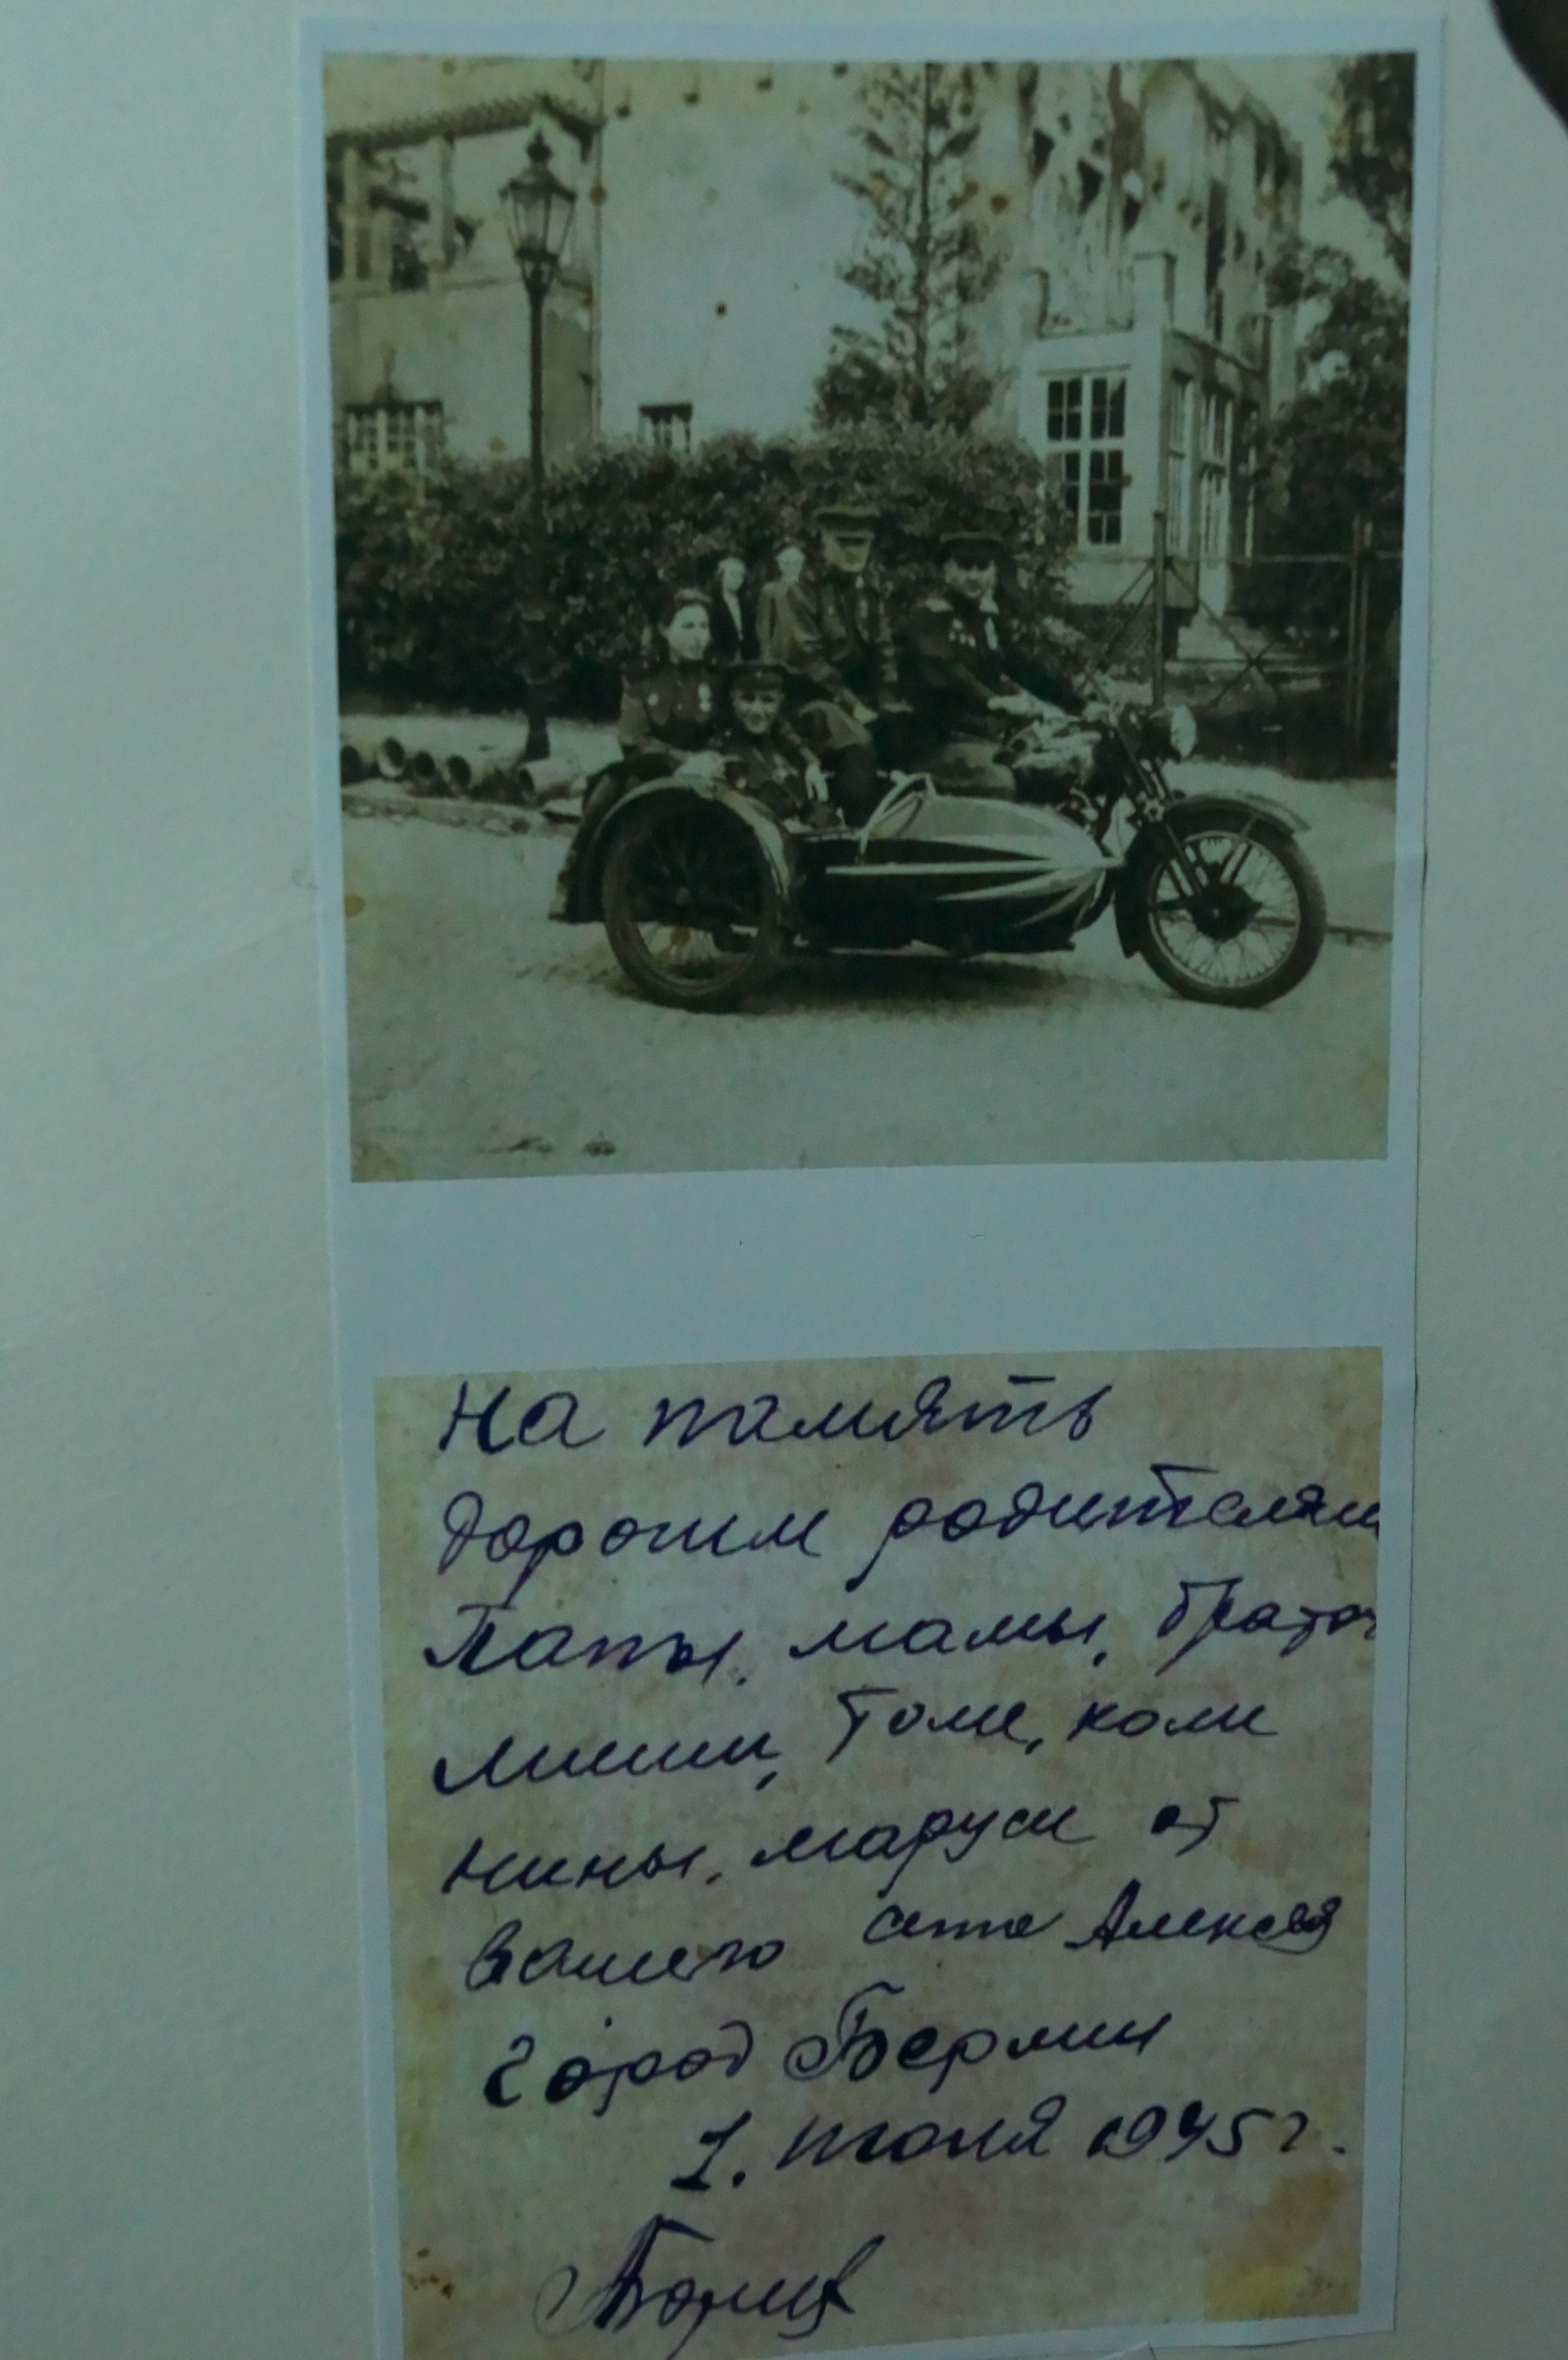 На память
дорогим родителям
Папы, мамы, братьям
миши, толи, коли
нины, маруси от
вашего сына Алексея
город Берлин
1. июля 1945 г.